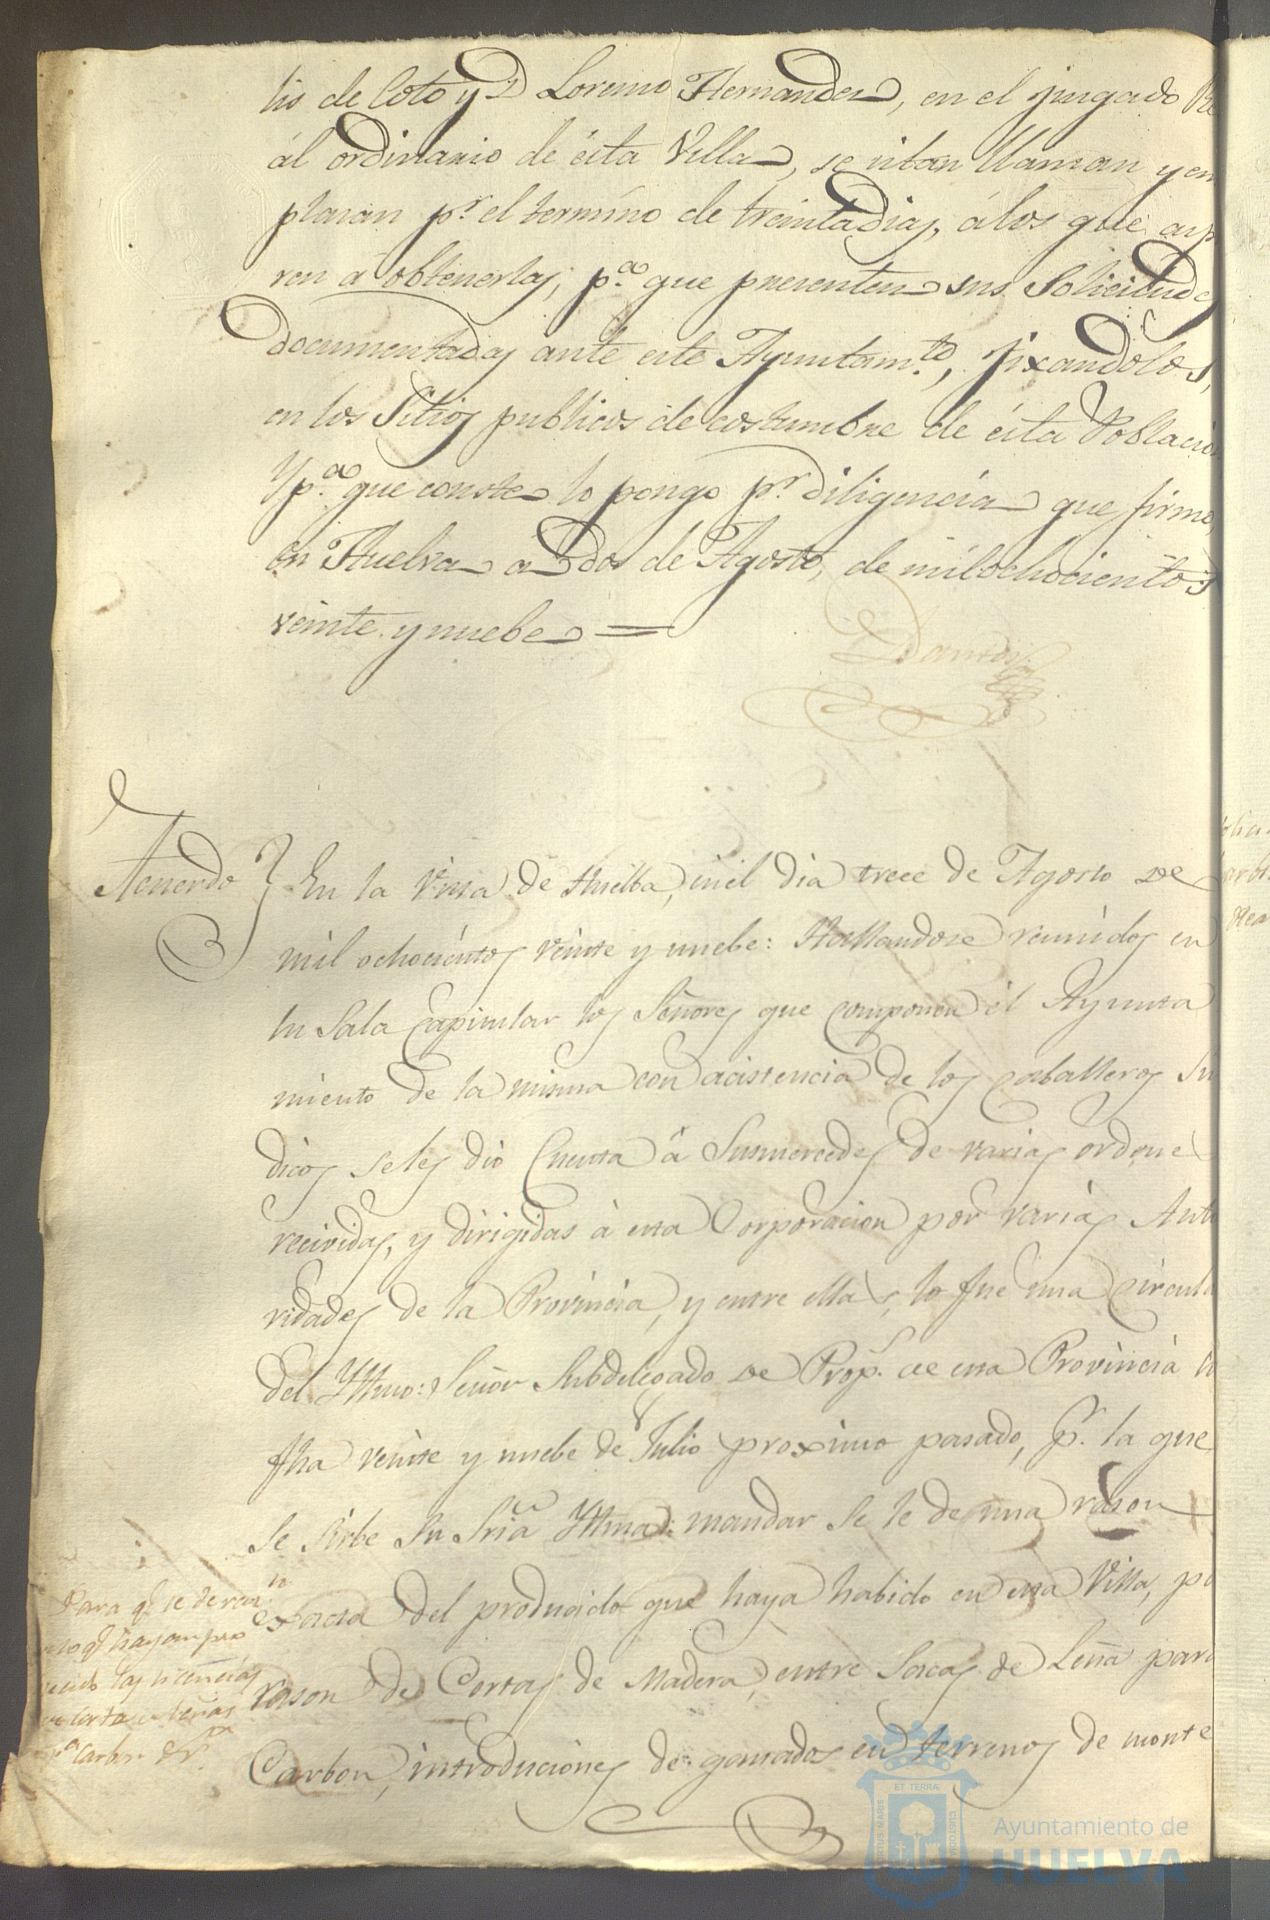 lis de Coto y D Lorenzo Hernandez, en el juzgado Re
ál ordinario de ésta Villa, se citan llaman y en
plazan pr. el termino de treinta dias, á los que asp
ren á obtenerlas, pa. que presenten sus Solicitudes
documentadas ante este Ayuntamto., fixandolos,
en los Sitios publicos de costumbre de ésta Poblacion
Y pa. que conste lo pongo pr. diligencia que firmo,
en Huelva a dos de Agosto, de mil ochocientos
veinte y nuebe =
Acuerdo } En la Villa de Huelba, en el dia trece de Agosto de
mil ochocientos veinte y nuebe: Hallandose reunidos en
su Sala Capitular los Señores que componen el Ayunta
miento de la misma con acistencia de los Caballeros Sin
dicos se les dió Cuenta á Susmercedes de varias ordene
recividas, y dirigidas á esta Corporacion por varias Auto
ridades de la Provincia, y entre ellas, lo fue una Circula
del Yltmo: Señor Subdelegado de Prop. de esta Provincia su
fha veinte y nuebe de Julio proximo pasado, pr. la que
se sirbe Su Sria Yltma: mandar se le de una rason
exacta del producido que haya habido en esta Villa, po
rason de Cortas de Madera, entre Sacas de Leña para
Carbon, introduciones de ganados en terrenos de monte
Para q. se de razn.
de lo q. hayan pro
ducido las licencias
de corta de leñas
pa. Carbon &a.
ET TERRA
CUSTODIA
PORTUS MARIS
Ayuntamiento de
HUELVA